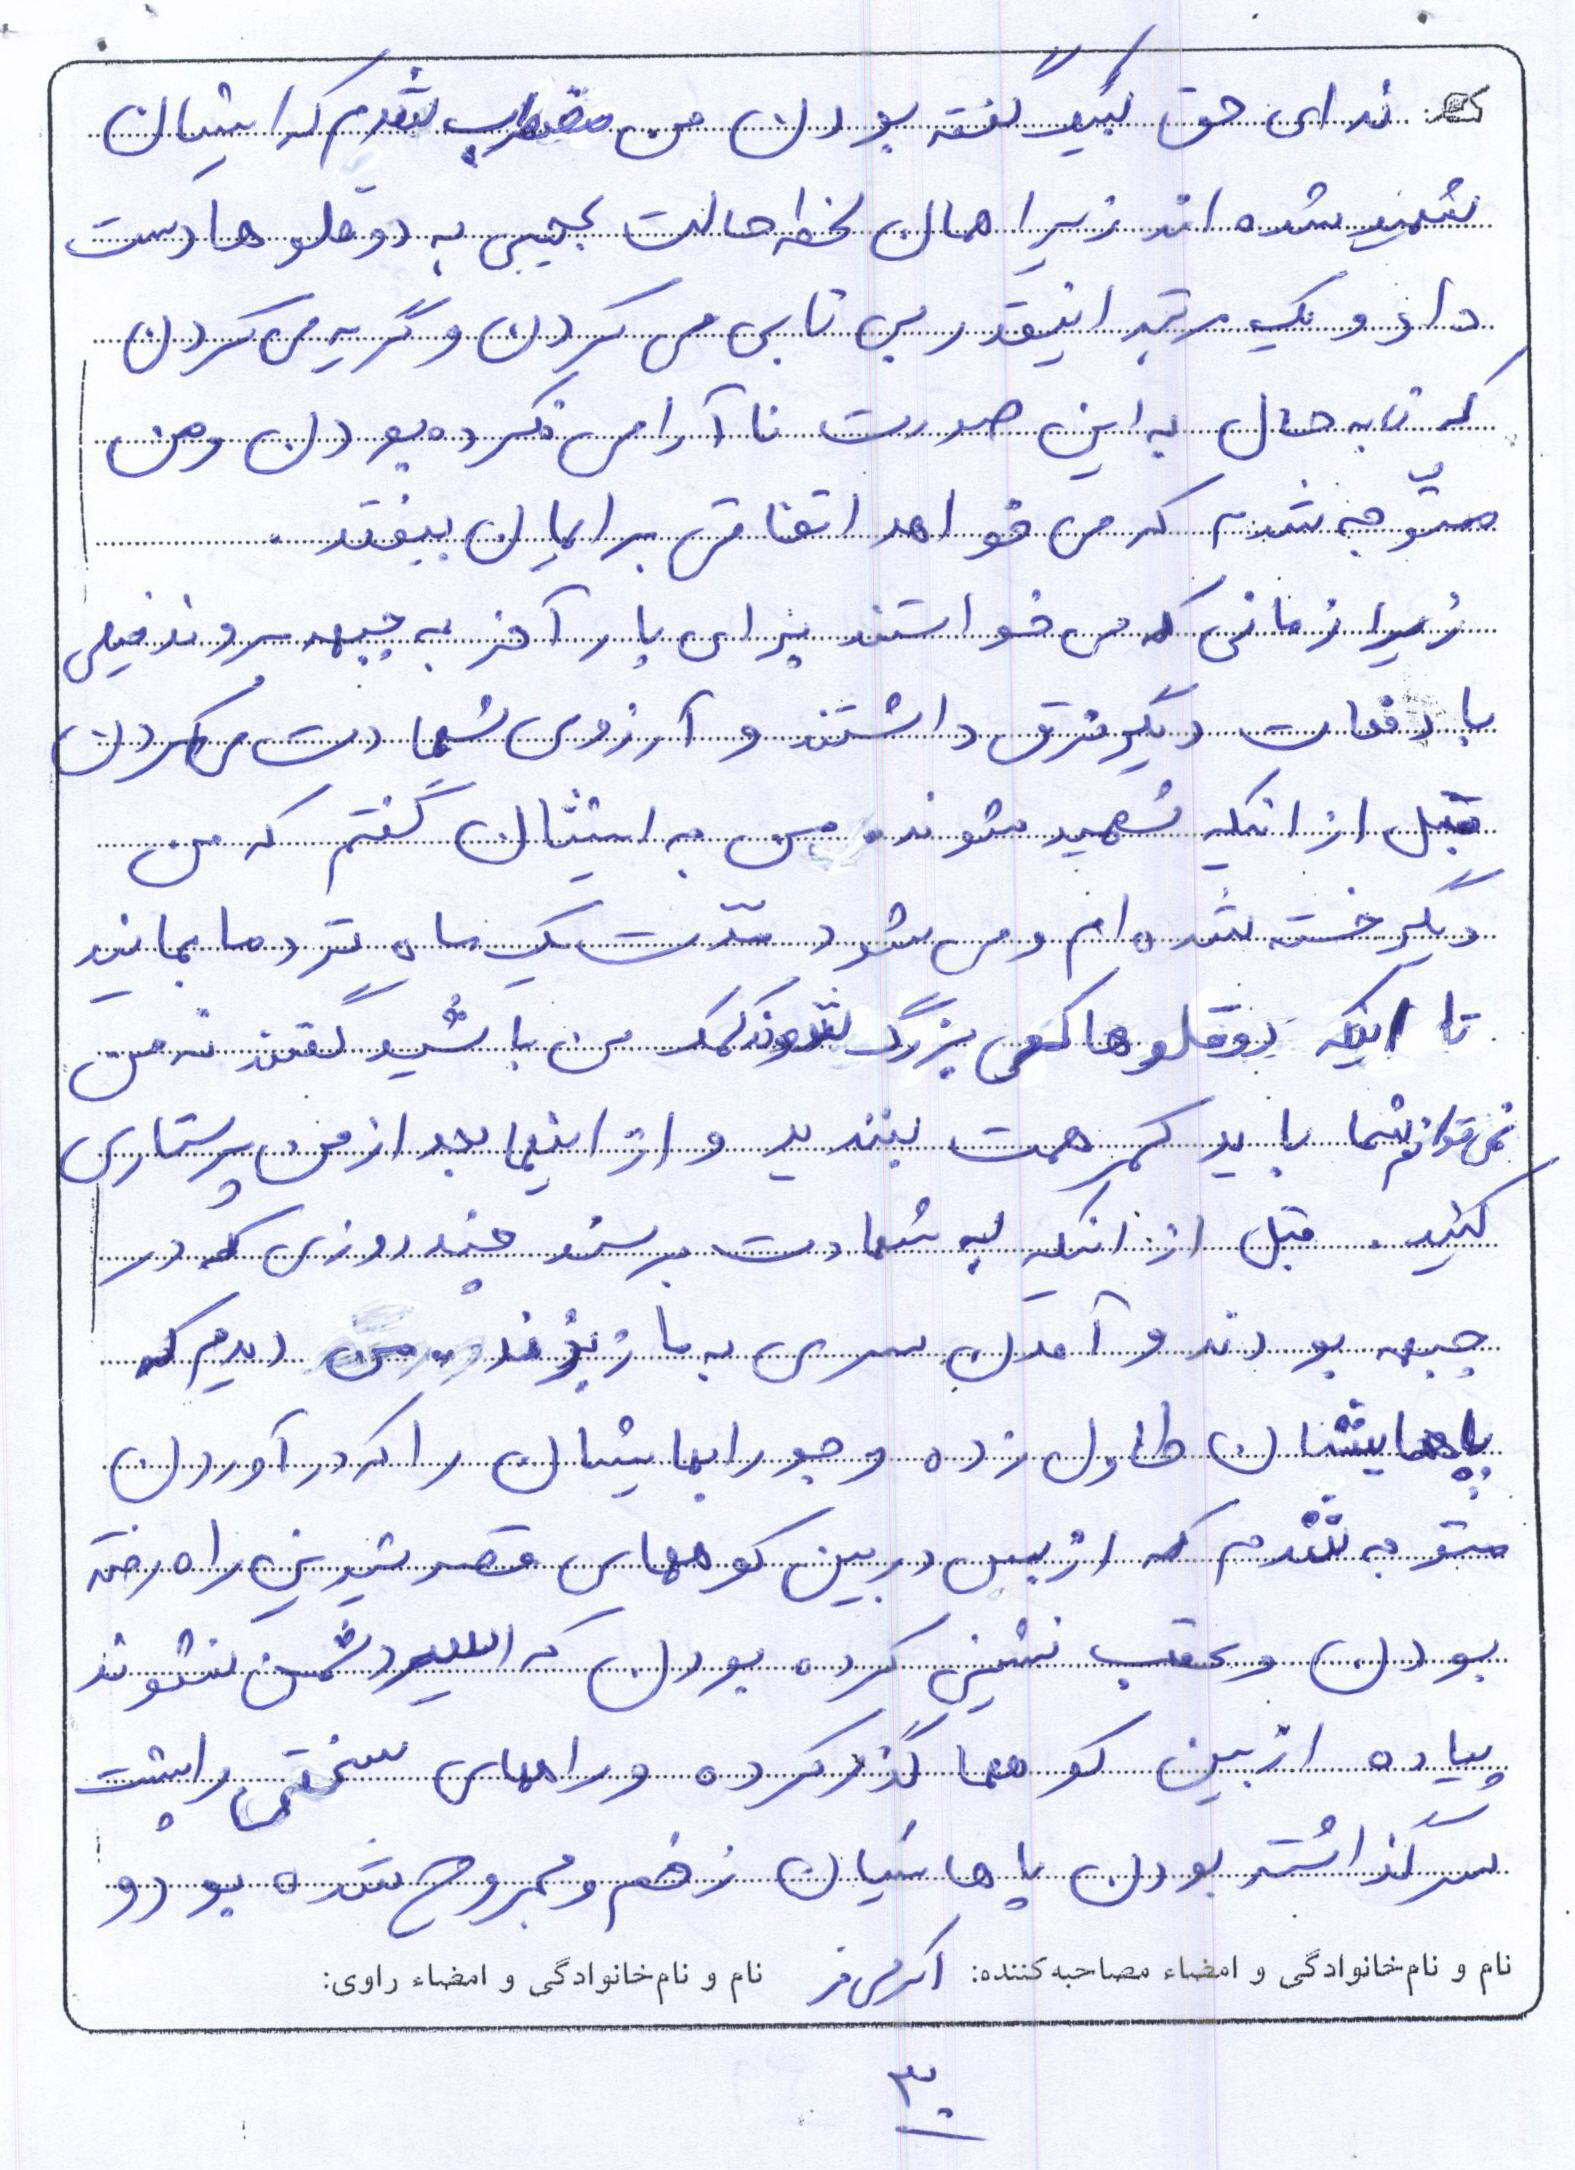 که ندای حق لبیک گفته بودن من مضطرب شدم که ایشان
شهید شده اند زیرا همان لحظه حالت عجیبی به دوقلوها دست
داد و یک مرتبه اینقدر بی تابی می کردن و گریه می کردن
که تا به حال به این صورت نا آرامی نکرده بودن و من
متوجه شدم که می خواهد اتفاقی برایمان بیفتد .
زیرا زمانی که می خواستند برای بار آخر به جبهه بروند خیلی
با دفعات دیگر فرق داشتند و آرزوی شهادت می کردن
قبل از اینکه شهید شوند من به ایشان گفتم که من
دیگر خسته شده ام و می شود مدّت یک ماه نزد ما بمانید
تا اینکه دوقلوها کمی بزرگ شوند کمک من باشید گفتند نه من
نمی توانم شما باید کمر همت ببندید و از اینجا بعد از من پرستاری
کنید . قبل از اینکه به شهادت برسند چند روزی که در
جبهه بودند و آمدن سری به ما زدند من دیدم که
پاهایشان طاول زده و جورابهایشان را که در آوردن
متوجه شدم که از بس در بین کوههای قصر شیرین راه رفته
بودن و عقب نشینی کرده بودن که اسیر دشمن نشوند
پیاده از بین کوهها گذر کرده و راههای سختی را پشت
سر گذاشته بودن پاهاشان زخم و مجروح شده بود و
نام و نام‌خانوادگی و امضاء مصاحبه‌کننده: اکرمی فر نام و نام‌خانوادگی و امضاء راوی:
۳